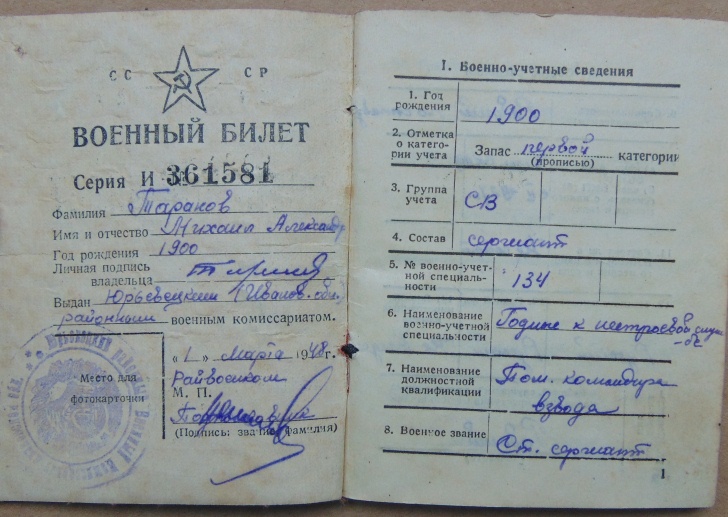 СС СР
ВОЕННЫЙ БИЛЕТ
Серия И № 361581
Фамилия Таранов
Имя и отчество Михаил Александр
Год рождения 1900
Личная подпись
владельца
Выдан Юрьевецким Иванов. обл.
районным военным комиссариатом.
„1" марта 1948 г.
Место для
фотокарточки
Райвоенком
М. П.
(Подпись: звание, фамилия)
I. Военно-учетные сведения
1. Год
рождения
1900
2. Отметка
о катего-
рии учета
Запас первой категории
(прописью)
3. Группа
учета
СВ
4. Состав
сержант
5. № военно-учет-
ной специаль-
ности
134
6. Наименование
военно-учетной
специальности
Годные к нестроевой служ-
бе
7. Наименование
должностной
квалификации
Пом. командира
взвода
8. Военное звание
Ст. сержант
1